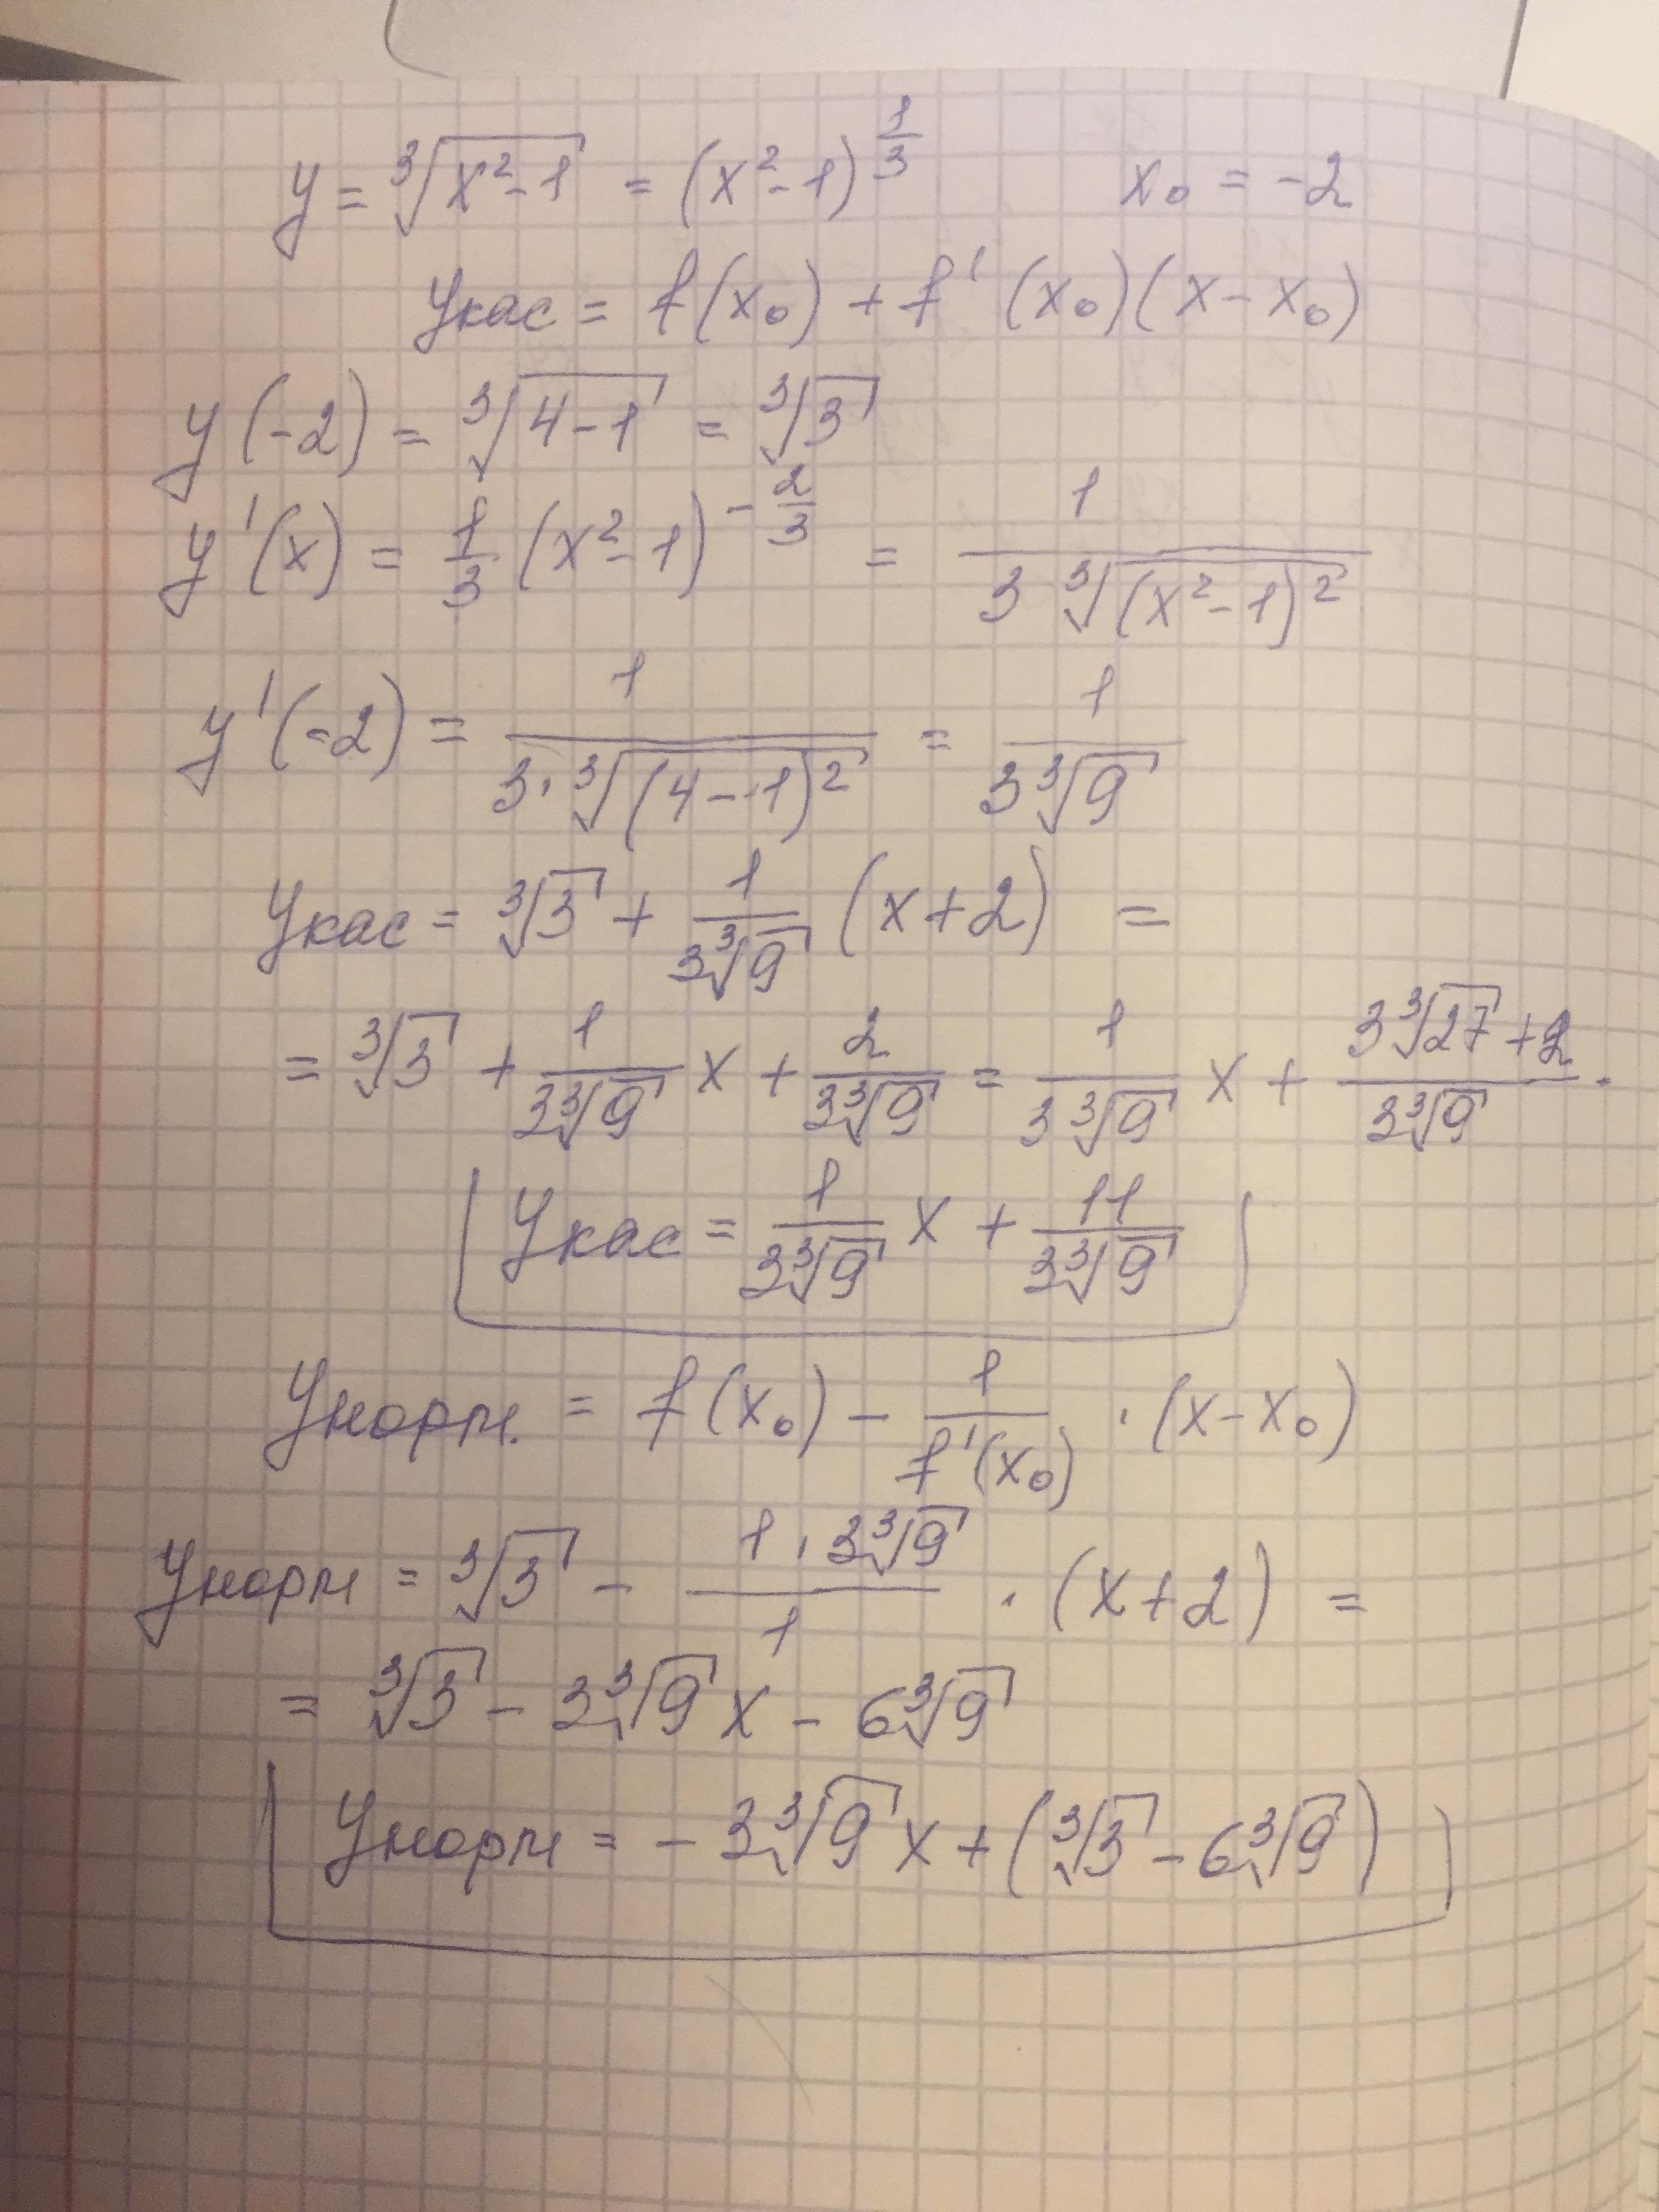 y = ∛(x²-1) = (x²-1)^(1/3) x₀ = -2
yкас = f(x₀) + f'(x₀)(x - x₀)
y(-2) = ∛(4-1) = ∛3
y'(x) = 1/3 (x²-1)^(-2/3) = 1/(3 ∛((x²-1)²))
y'(-2) = 1/(3·∛((4-1)²)) = 1/(3∛9)
yкас = ∛3 + 1/(3∛9) (x+2) =
= ∛3 + 1/(3∛9) x + 2/(3∛9) = 1/(3∛9) x + (3∛27 + 2)/(3∛9) .
yкас = 1/(3∛9) x + 11/(3∛9)
yнорм. = f(x₀) - 1/f'(x₀) · (x - x₀)
yнорм = ∛3 - (1·3∛9)/1 · (x+2) =
= ∛3 - 3∛9 x - 6∛9
yнорм = -3∛9 x + (∛3 - 6∛9)